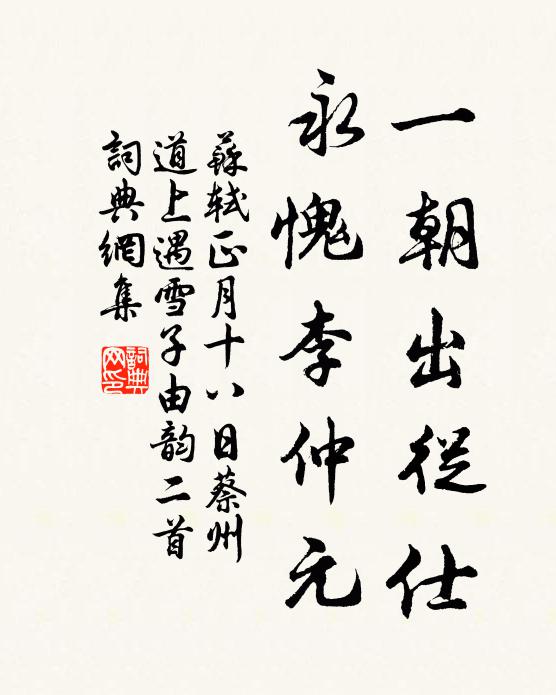 一朝出從仕
永愧李仲元
蘇軾正月十八日蔡州
道上遇雪子由韵二首
詞典網集
詞典網印